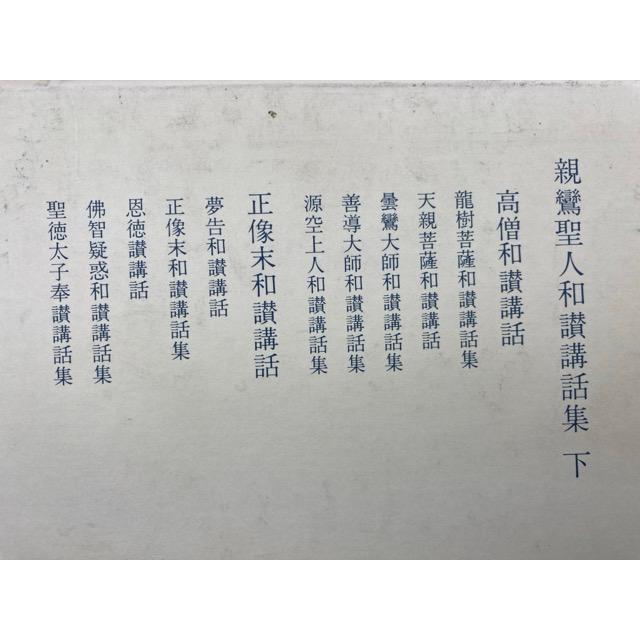 親鸞聖人和讃講話集 下
高僧和讃講話
龍樹菩薩和讃講話集
天親菩薩和讃講話
曇鸞大師和讃講話集
善導大師和讃講話集
源空上人和讃講話集
正像末和讃講話
夢告和讃講話
正像末和讃講話集
恩徳讃講話
佛智疑惑和讃講話集
聖徳太子奉讃講話集